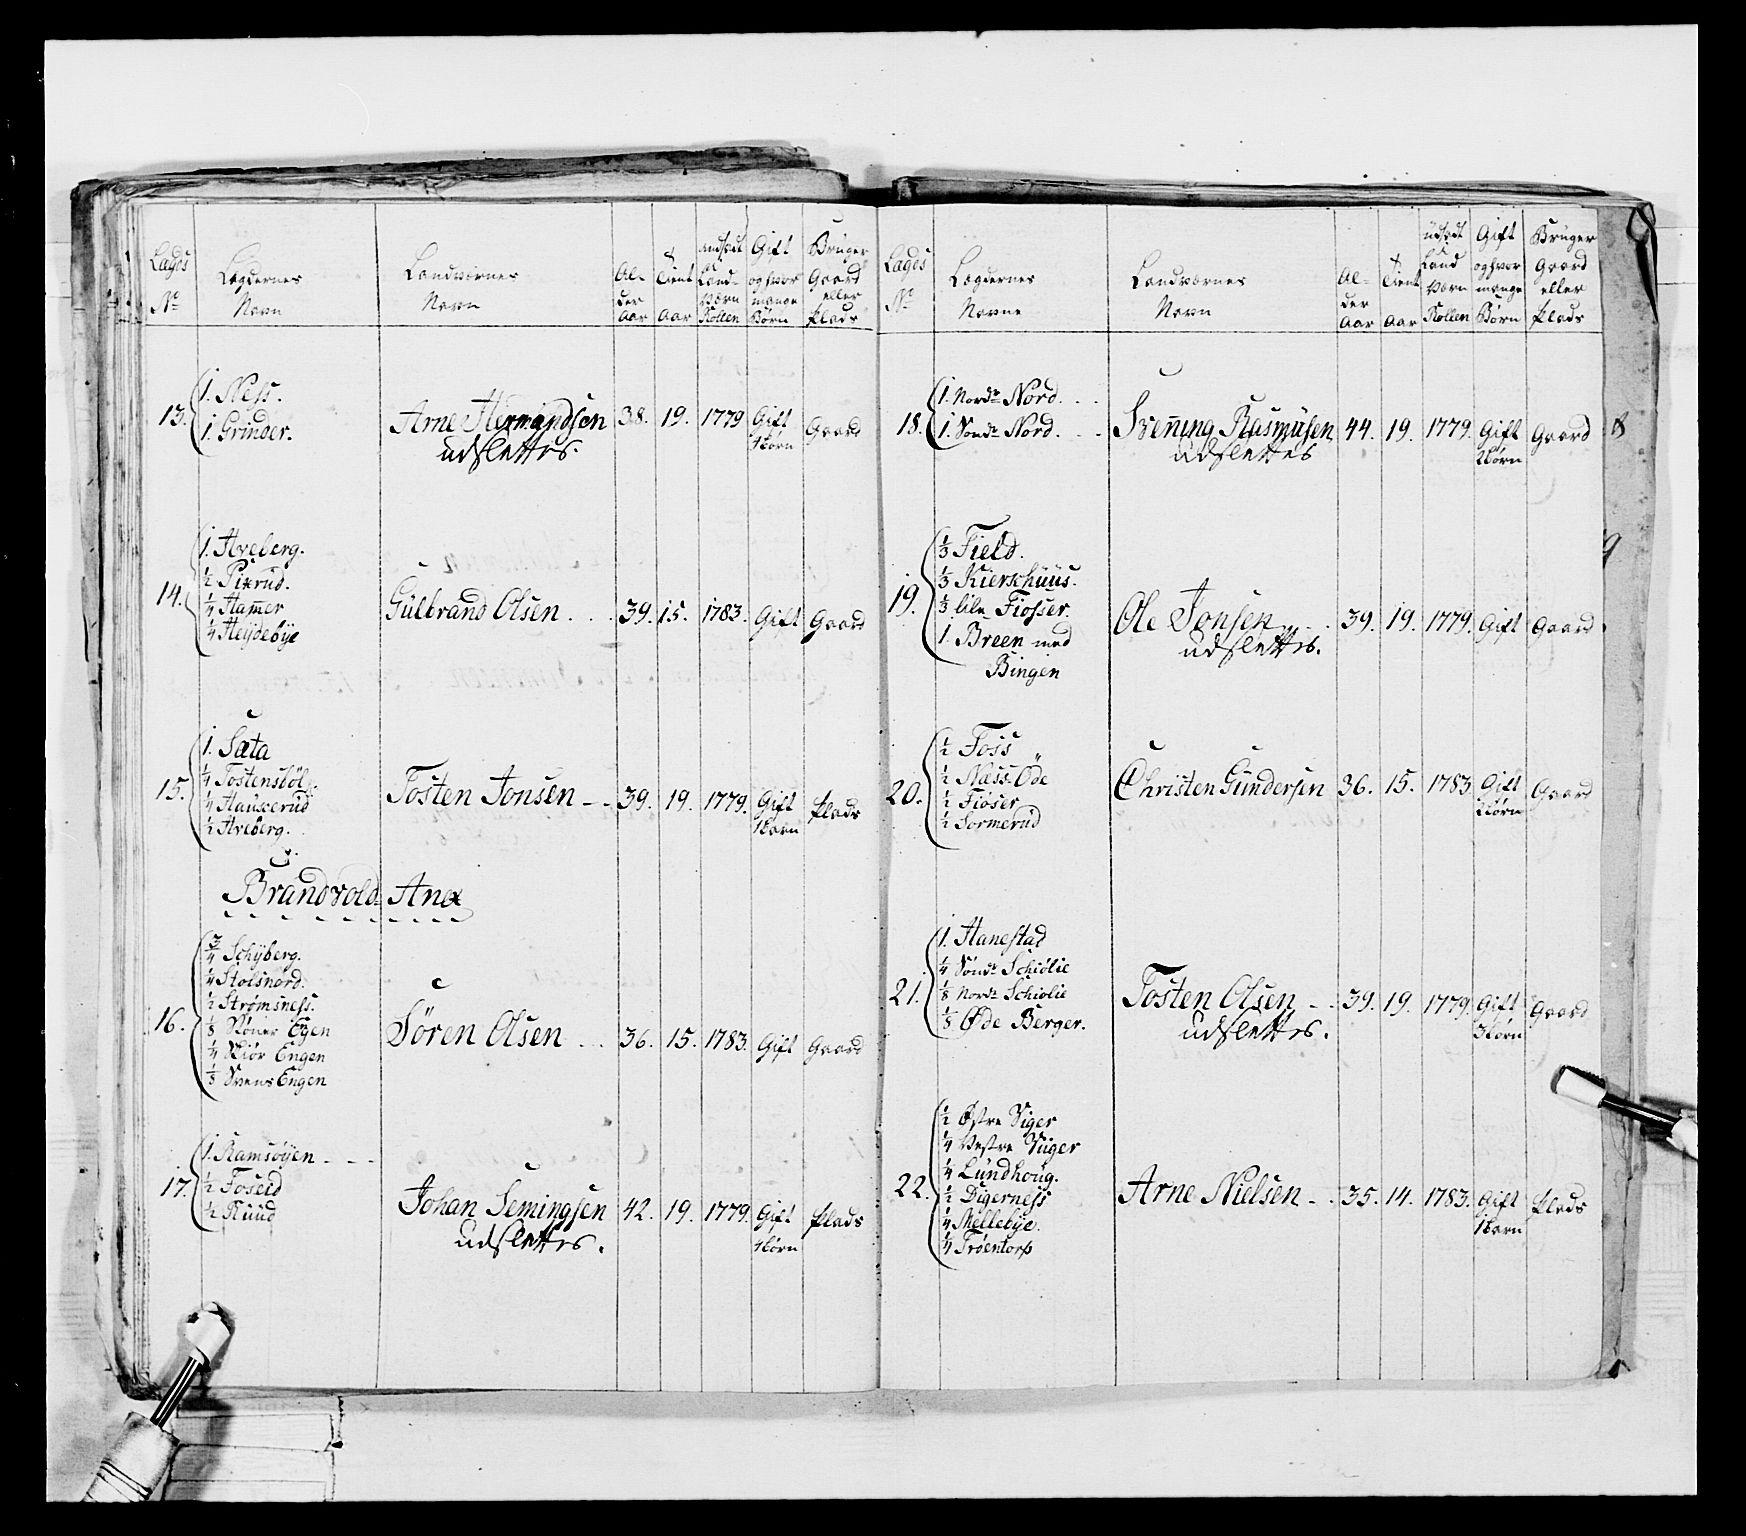 Lægds Lægdernes Landværnes Al- Tient Gift Bruger
No Navn Navn der og hvor Gaard
Aar Aar mange eller
Rollen Børn Plads
13. 1. Ness.
1. Grinder. Arne Hermandsen 38. 19. 1779 Gift Gaard
udslettes. 1 børn
14. 1. Areberg.
1/2 Pixrud.
1/4 Hamer Gulbrand Olsen . . . 39. 15. 1783. Gift Gaard
1/4 Heijdebÿe
15. 1. Sæta
1/4 Tostensböl
1/4 Hauxerud Tosten Jonsen - - 39. 19. 1779. Gift Plads
1/2 Areberg. 1 barn
Brandvold Anex
16. 3/4 Schÿberg.
1/4 Stolsnord.
1/2 Strømsness.
1/8 Køner Eÿen Sören Olsen . . . 36. 15. 1783. Gift Gaard
1/4 Kiör Engen
1/8 Svens Engen
17. 1. Ramsöÿen - - -
1/2 Foseid
1/2 Ruud Johan Semingsen 42. 19. 1779. Gift Plads
udslettes. 4 børn
Lægds Lægdernes Landværnes Al- Tient udsadt Gift Bruger
No Navne Navn der Land og hvor Gaard
Aar Aar Værn mange eller
Rollen Børn Plads
18. 1. Nordre Nord. . .
1. Söndre Nord. . - Svening Rasmusen 44. 19. 1779. Gift Gaard
udslettes 2 børn
19. 1/3 Field.
1/3 Kierschuus.
1/3 lille Fiosser.
1. Breen med Ole Jonsen . . . 39. 19. 1779. Gift Gaard
Bingen udslettes.
20. 1/2 Foss
1/2 Næss Öde
1/2 Fiöser Christen Gundersen 36. 15. 1783 Gift Gaard
1/2 Sormerud 2 børn
21. 1. Hanestad
1/4 Söndre Schiölie
1/8 Nordre Schiolie Tosten Olsen - - 39. 19. 1779. Gift Gaard
1/8 Øde Berger. udslettes. 3 børn
22. 1/2 Østre Viger
1/4 Vestre Viiger
1/4 Lundhoug.
1/2 Digerness Arne Nielsen - . 35. 14. 1783. Gift Plads
1/4 Mellebÿe. 1 barn
1/4 Tröentorp